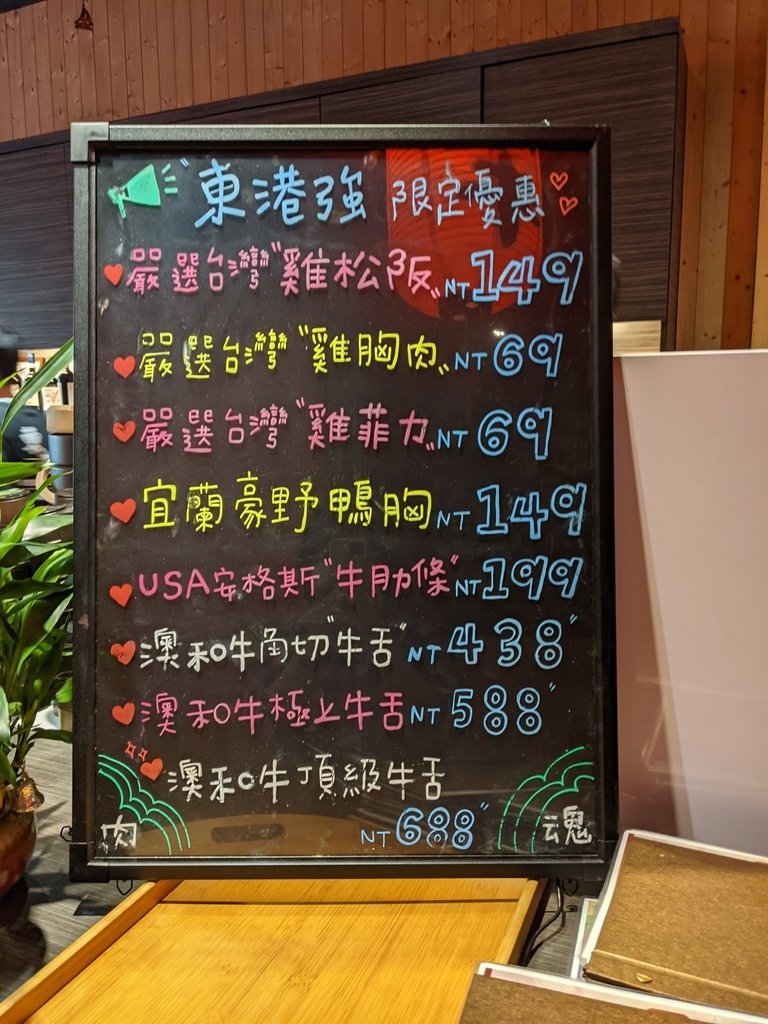 "東港強 限定優惠
嚴選台灣"雞松阪"NT149
嚴選台灣"雞胸肉"NT69
嚴選台灣"雞菲力"NT69
宜蘭豪野鴨胸NT149
USA安格斯"牛肋條"NT199
澳和牛角切"牛舌"NT438"
澳和牛極上牛舌NT588"
澳和牛頂級牛舌
NT688"
肉 魂